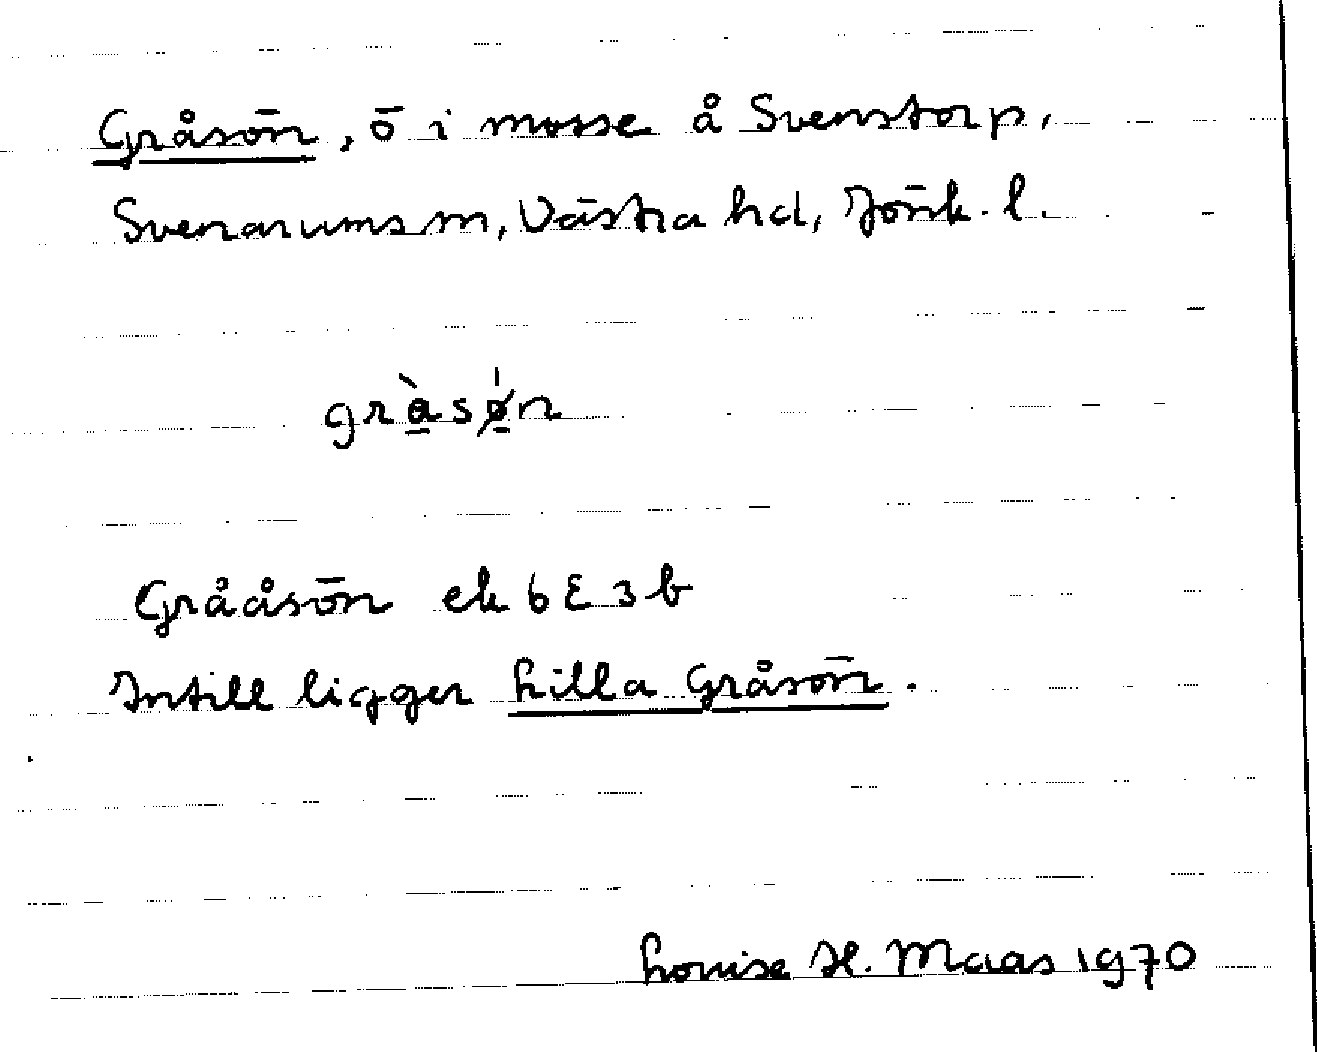 Gråsön, ö i mosse å Svenstorp,
Svenarums sn, Västra hd, Jönk. l.
gràsǿn
Grååsön ek 6E3b
Intill ligger Lilla Gråsön.
Louise H. Maas 1970